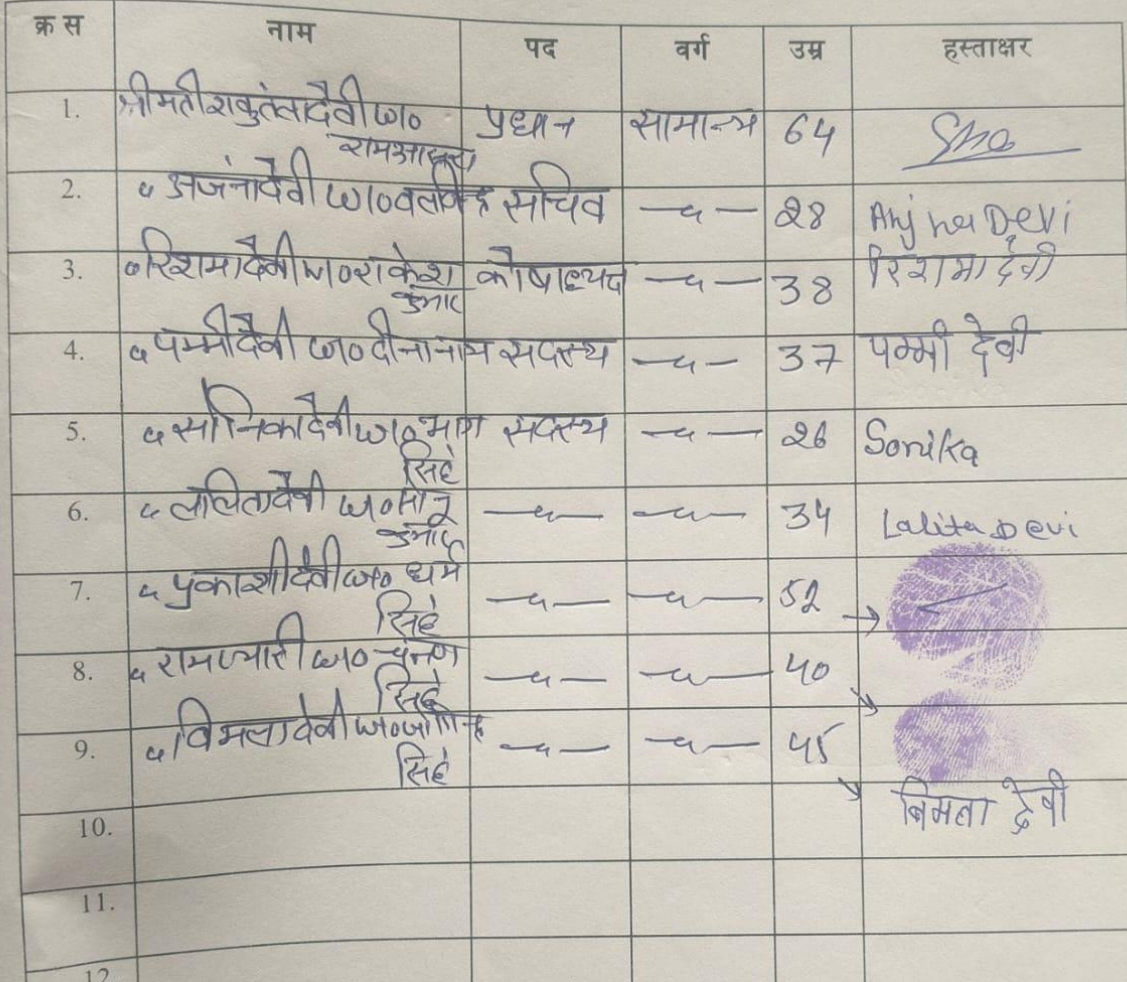 क्र स नाम पद वर्ग उम्र हस्ताक्षर
1. श्रीमती शकुंतलादेवी w/o प्रधान सामान्य 64
2. " अजंनादेवी w/o सचिव —"— 28 Anjna Devi
3. " रिशमादेवी w/o राकेश कोषाध्यक्ष —"— 38 रिशमा देवी
कुमार
4. " पम्मीदेवी w/o दीनानाथ सदस्य —"— 37 पम्मी देवी
5. " सोनिकादेवी w/o भाग सदस्य —"— 26 Sonika
सिहं
6. " ललितादेवी w/o —"— —"— 34 Lalita Devi
कुमार
7. " प्रकाशीदेवी w/o धर्म —"— —"— 52
सिहं
8. " रामप्यारी w/o —"— —"— 40
सिहं
9. " विमलादेवी w/o —"— —"— 45
सिहं
बिमला देवी
10.
11.
12